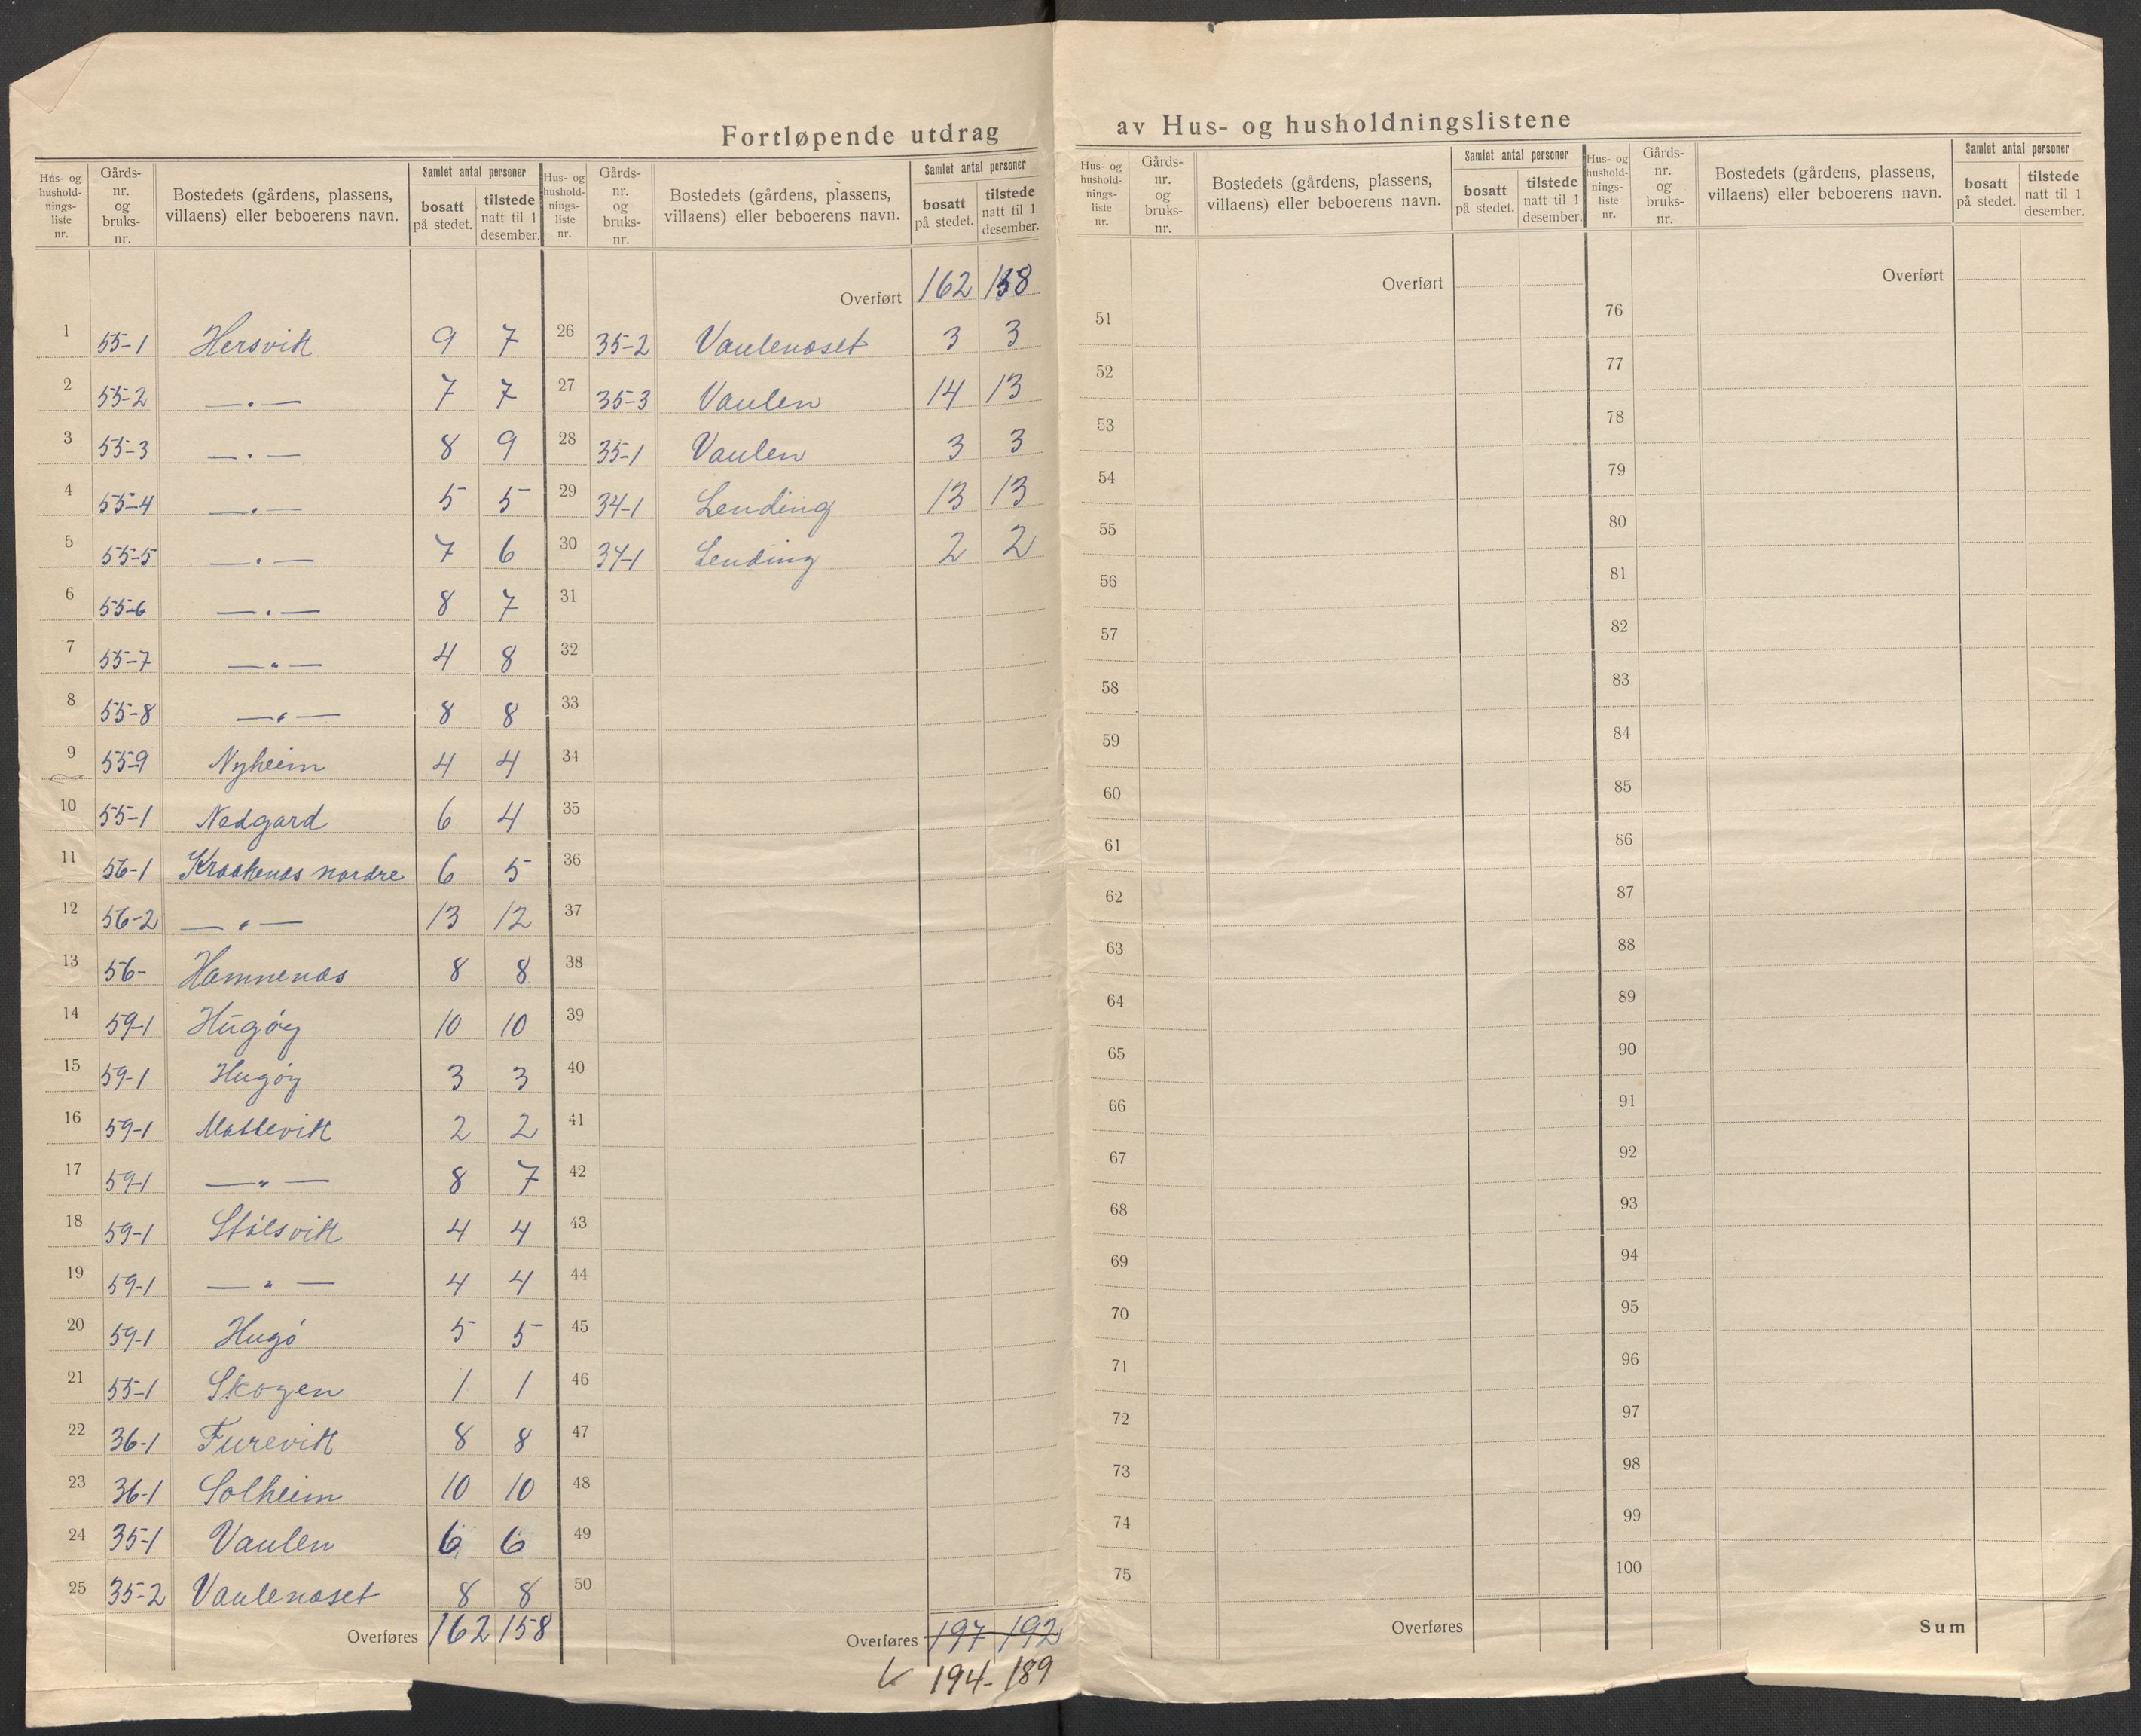 Fortløpende utdrag av Hus- og husholdningslistene
Hus- og hushold-nings-liste nr. Gårds-nr. og bruks-nr. Bostedets (gårdens, plassens, villaens) eller beboerens navn. Samlet antal personer bosatt på stedet. tilstede natt til 1 desember.
1 55-1 Hersvik 9 7
2 55-2 —„— 7 7
3 55-3 —„— 8 9
4 55-4 —„— 5 5
5 55-5 —„— 7 6
6 55-6 —„— 8 7
7 55-7 —„— 4 8
8 55-8 —„— 8 8
9 55-9 Nyheim 4 4
10 55-1 Nedgard 6 4
11 56-1 Kraakenes nordre 6 5
12 56-2 —„— 13 12
13 56- Hamnenes 8 8
14 59-1 Hugøy 10 10
15 59-1 Hugøy 3 3
16 59-1 2 2
17 59-1 —„— 8 7
18 59-1 Stølsvik 4 4
19 59-1 —„— 4 4
20 59-1 Hugø 5 5
21 55-1 Skogen 1 1
22 36-1 Furevik 8 8
23 36-1 Solheim 10 10
24 35-1 Vaulen 6 6
25 35-2 Vauleneset 8 8
Overføres 162 158
Hus- og hushold-nings-liste nr. Gårds-nr. og bruks-nr. Bostedets (gårdens, plassens, villaens) eller beboerens navn. Samlet antal personer bosatt på stedet. tilstede natt til 1 desember.
Overført 162 158
26 35-2 Vauleneset 3 3
27 35-3 Vaulen 14 13
28 35-1 Vaulen 3 3
29 34-1 Lending 13 13
30 34-1 Lending 2 2
31
32
33
34
35
36
37
38
39
40
41
42
43
44
45
46
47
48
49
50
Overføres 197 192
194 - 189
Hus- og hushold-nings-liste nr. Gårds-nr. og bruks-nr. Bostedets (gårdens, plassens, villaens) eller beboerens navn. Samlet antal personer bosatt på stedet. tilstede natt til 1 desember.
Overført
51
52
53
54
55
56
57
58
59
60
61
62
63
64
65
66
67
68
69
70
71
72
73
74
75
Overføres
Hus- og hushold-nings-liste nr. Gårds-nr. og bruks-nr. Bostedets (gårdens, plassens, villaens) eller beboerens navn. Samlet antal personer bosatt på stedet. tilstede natt til 1 desember.
Overført
76
77
78
79
80
81
82
83
84
85
86
87
88
89
90
91
92
93
94
95
96
97
98
99
100
Sum